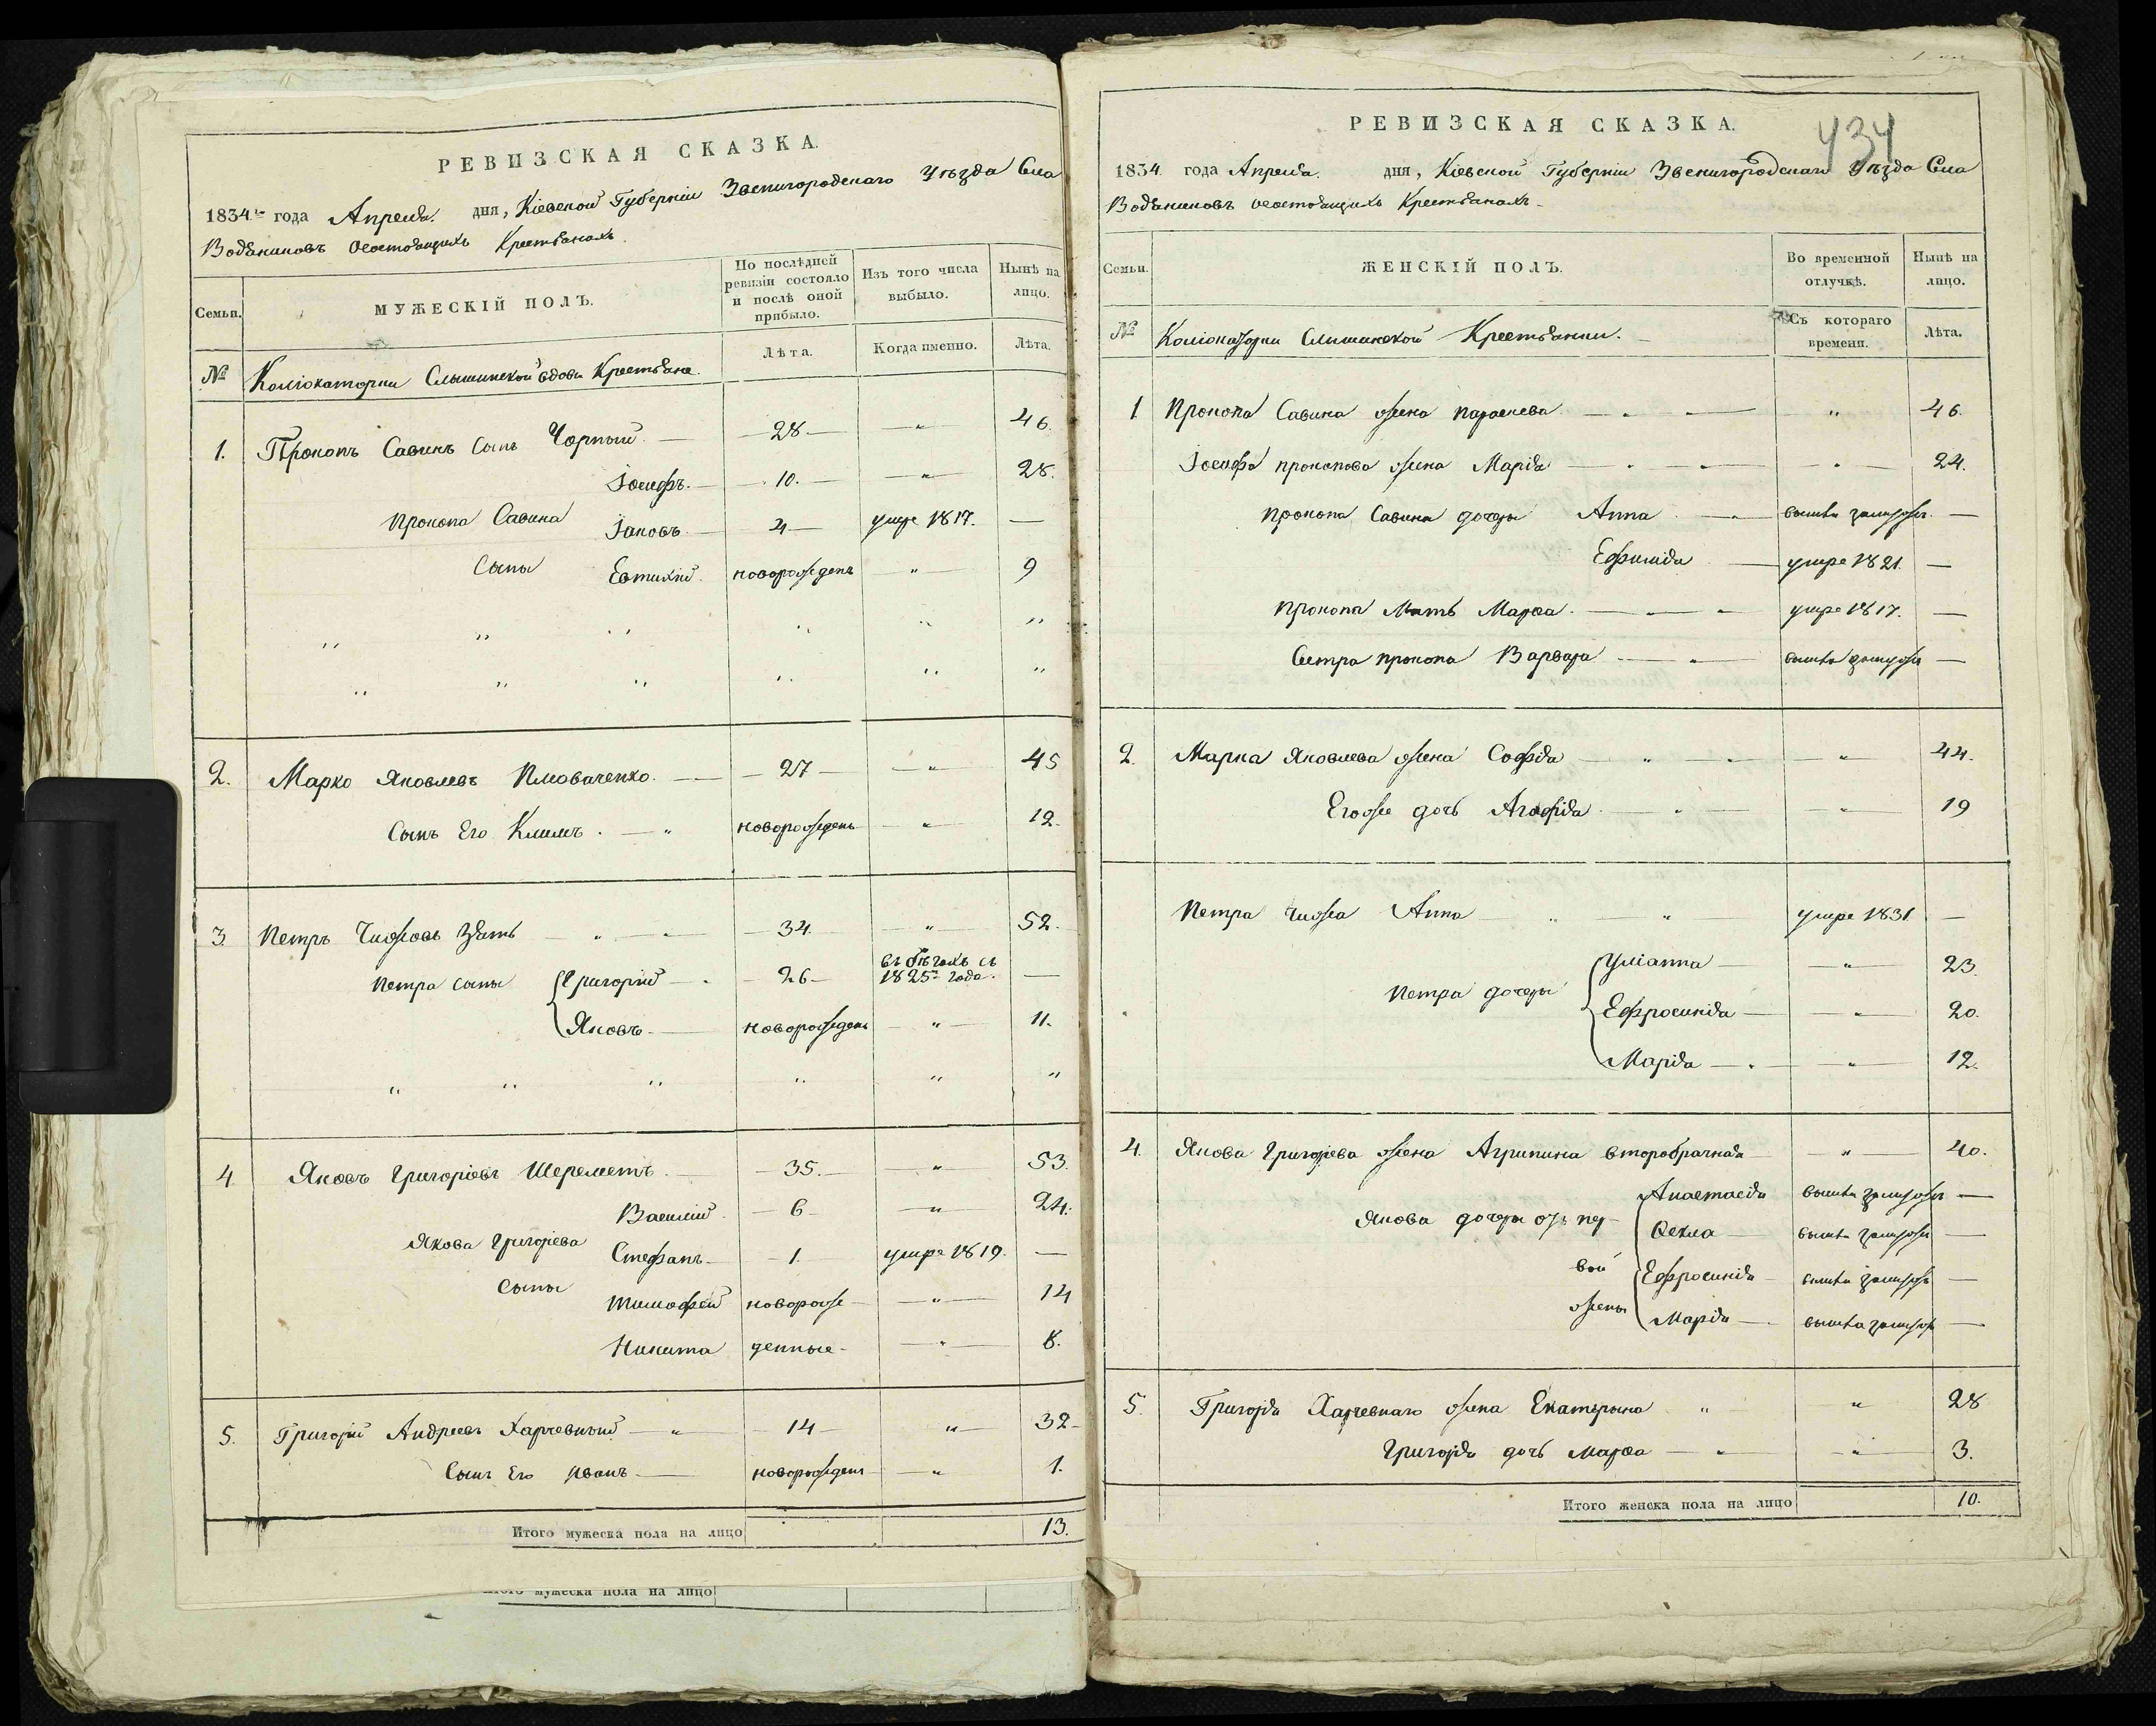 РЕВИЗСКАЯ СКАЗКА.
1834 года Апреля дня, Кіевской Губерніи Звенигородскаго Уѣзда Села
Водяниковъ остоящихъ Крестьянахъ
Семьи.
МУЖЕСКІЙ ПОЛЪ.
По послѣдней ревизіи состояло и послѣ оной прибыло.
Изъ того числа выбыло.
Нынѣ на лицо.
№
Слышинской вдовы Крестьяне
Лѣта.
Когда именно.
Лѣта.
1. Прокопъ Савинъ сынъ Чорный — 28 — „ 46.
Іосифъ. — 10. — „ 28.
Прокопа Савина Іаковъ — 4 — умре 1817. —
Сыны Евтихій новорожденъ „ 9
2. Марко Яковлевъ — 27 — „ 45
Сынъ Его Климъ. — „ новорожденъ „ 12.
3 Петръ Чижовъ Зять — „ — 34. „ 52.
Петра сыны Григорій — 26 — въ бѣгахъ съ 1825го года. —
Яковъ. — новорожденъ „ 11.
4 Яковъ Григоріевъ Шереметъ. — 35. — „ 53.
Василій — 6 — „ 24.
Якова Григорiева Стефанъ — 1. умре 1819. —
Сыны Тимофей новорож- „ 14
Никита денные - „ 8.
5. Григорій Андреевъ Харчевный — „ 14 — „ 32 -
Сынъ Его Иванъ. — новорожденъ „ 1.
Итого мужеска пола на лицо 13.
Итого мужеска пола на лицо
434
РЕВИЗСКАЯ СКАЗКА.
1834. года Апреля. дня, Кіевской Губерніи Звенигородскаго Уѣзда Села
Водяниковъ остоящихъ Крестьянахъ
Семьи.
ЖЕНСКІЙ ПОЛЪ.
Во временной отлучкѣ.
Нынѣ на лицо.
№
Слышинской Крестьянки.
Съ котораго времени.
Лѣта.
1 Прокопа Савина жена Параскева — „ 46.
Іосифа Прокопова жена Марія — „ 24.
Прокопа Савина дочери Анна — вышла замужъ. —
Ефимія — умре 1821. —
Прокопа Мать Марѳа. — умре 1817. —
Сестра прокопа Варвара — вышла замужъ —
2. Марка Яковлева жена Софія — „ 44.
Егоже дочь Агафія — „ 19
Петра Чижа Анна „ умре 1831 —
Петра дочери Уліанна — „ 23.
Ефросинія — „ 20.
Марія — „ 12.
4. Якова Григорiева жена Агрипина второбрачная — „ 40.
Якова дочери отъ пер- Анастасія вышла замужъ —
Ѳекла вышла замужъ —
вой Ефросинія вышла замужъ —
жены Марія — вышла замужъ —
5. Григорія Харчевнаго жена Екатерына „ „ 28
Григорія дочь Марѳа — „ 3.
Итого женска пола на лицо 10.